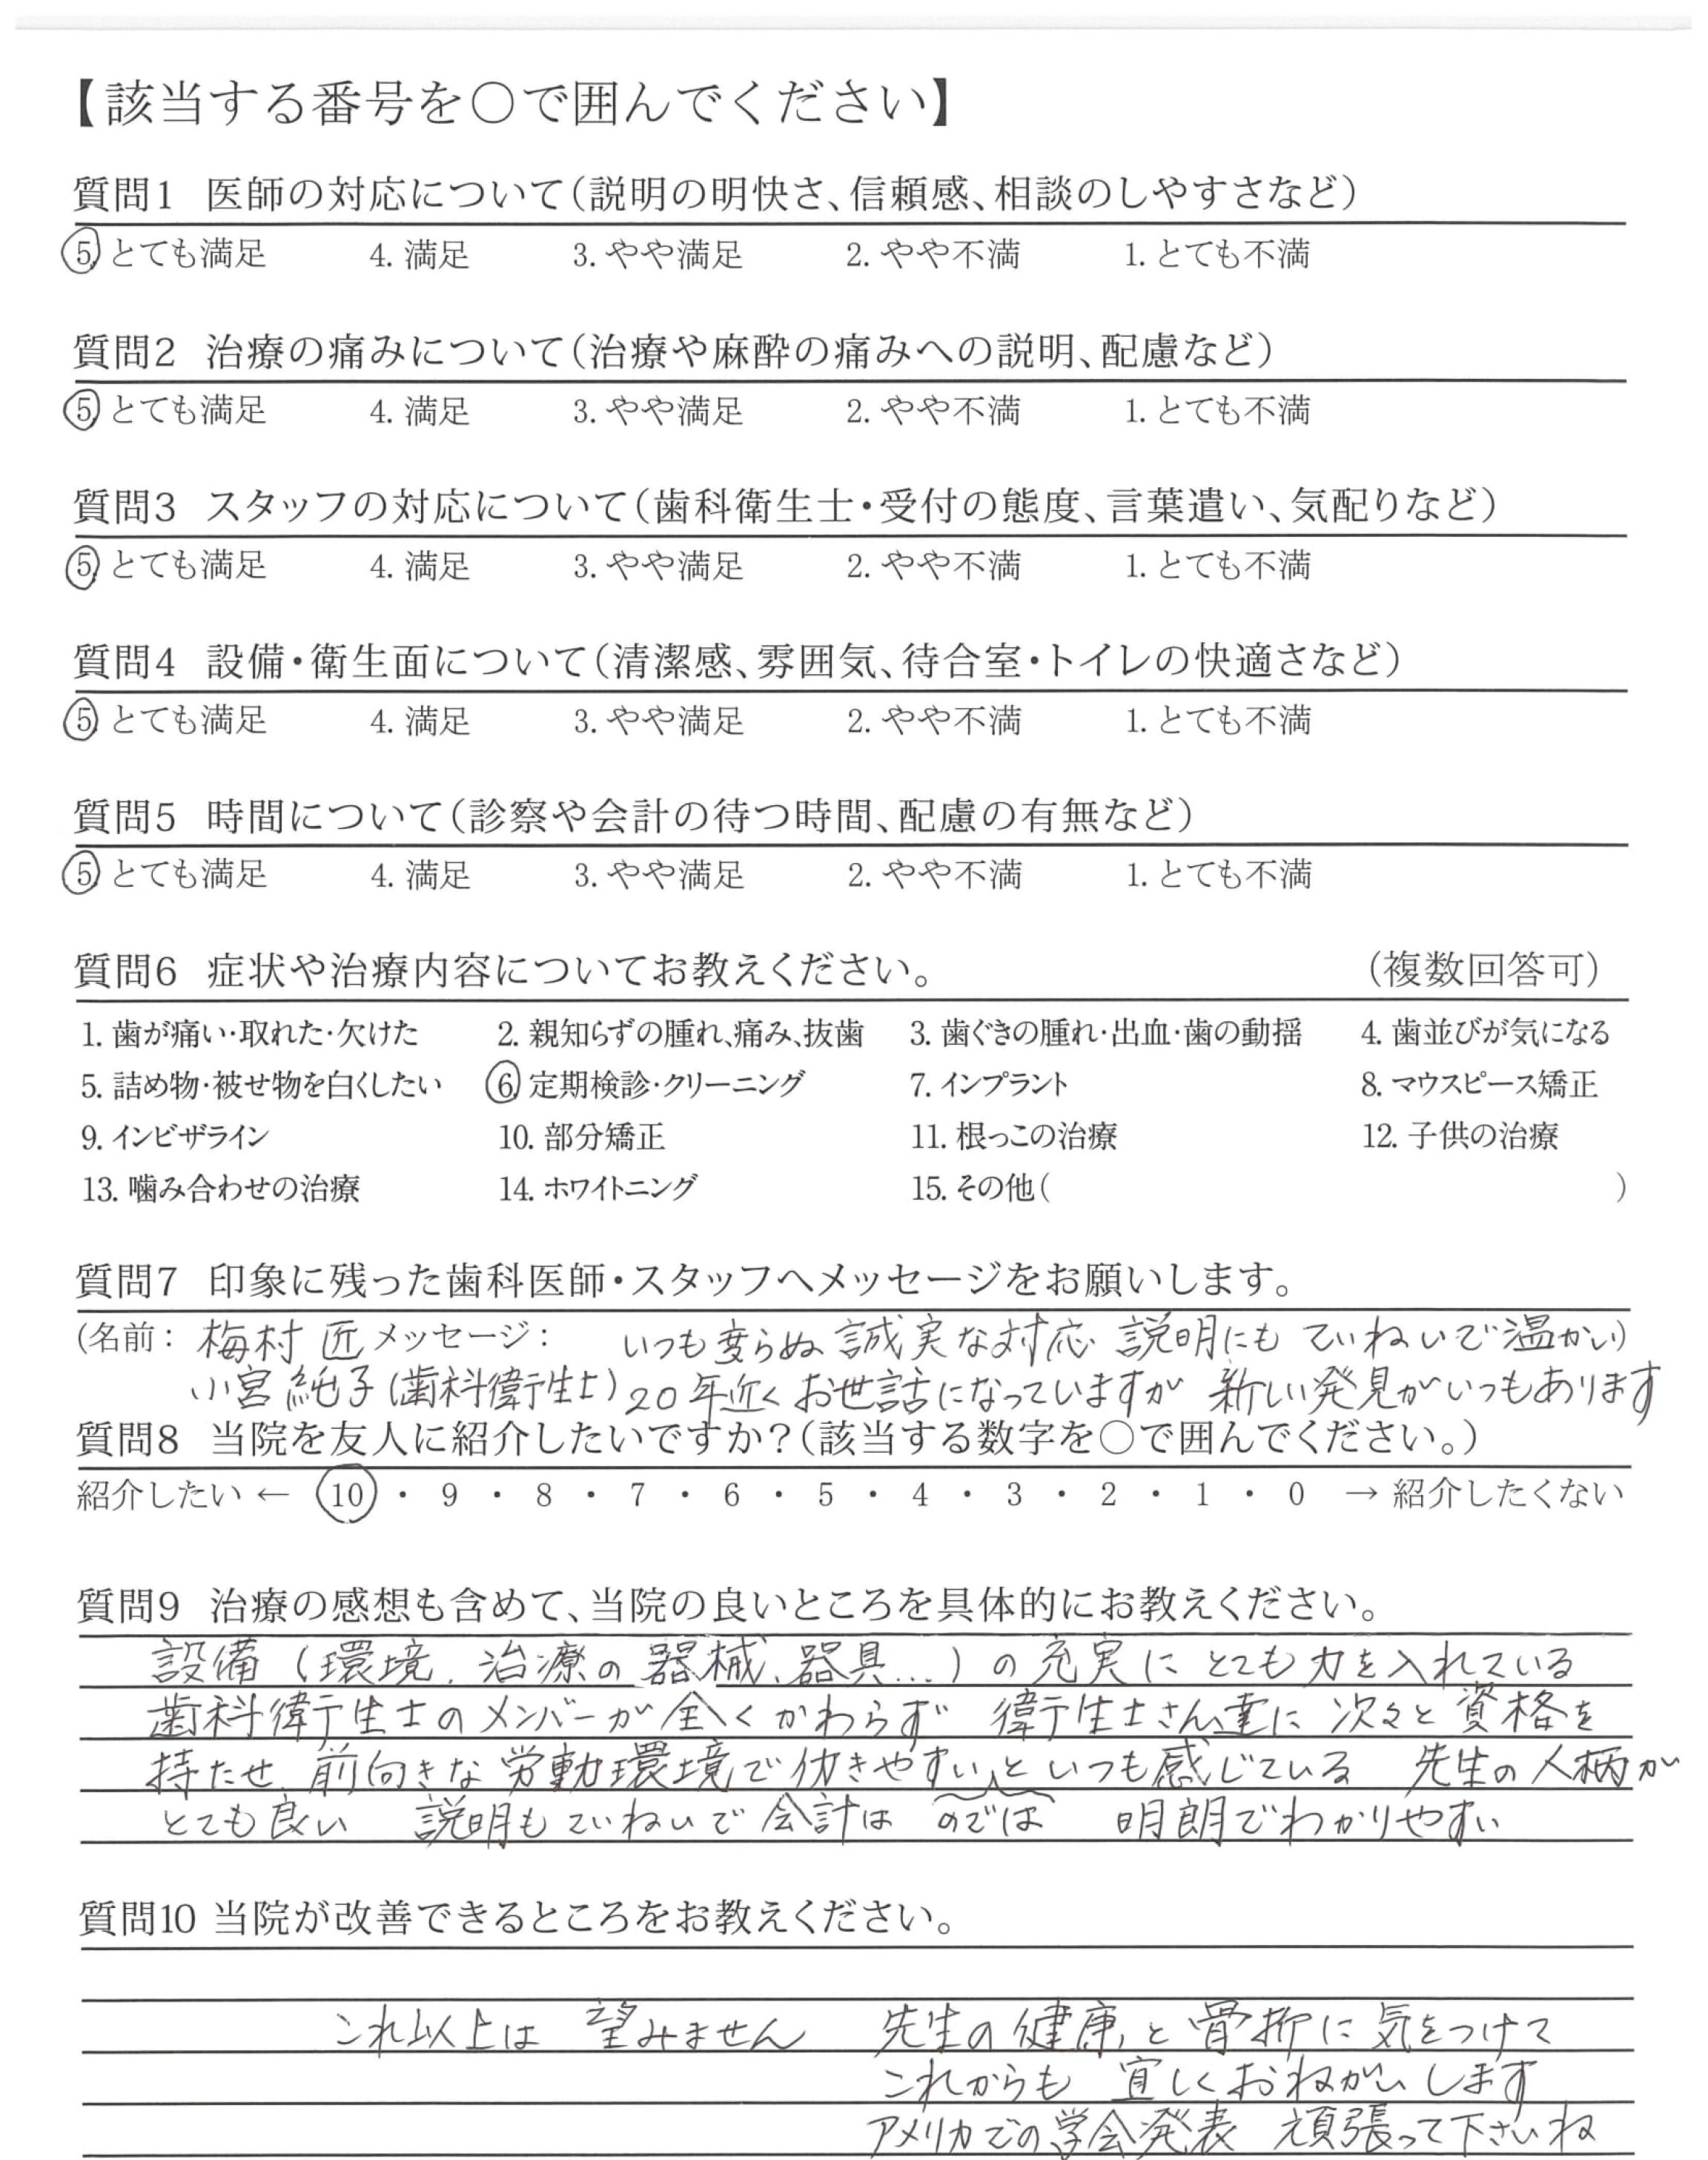 【該当する番号を○で囲んでください】
質問1 医師の対応について(説明の明快さ、信頼感、相談のしやすさなど)
5. とても満足 4. 満足 3. やや満足 2. やや不満 1. とても不満
質問2 治療の痛みについて(治療や麻酔の痛みへの説明、配慮など)
5. とても満足 4. 満足 3. やや満足 2. やや不満 1. とても不満
質問3 スタッフの対応について(歯科衛生士・受付の態度、言葉遣い、気配りなど)
5. とても満足 4. 満足 3. やや満足 2. やや不満 1. とても不満
質問4 設備・衛生面について(清潔感、雰囲気、待合室・トイレの快適さなど)
5. とても満足 4. 満足 3. やや満足 2. やや不満 1. とても不満
質問5 時間について(診察や会計の待つ時間、配慮の有無など)
5. とても満足 4. 満足 3. やや満足 2. やや不満 1. とても不満
質問6 症状や治療内容についてお教えください。 (複数回答可)
1. 歯が痛い・取れた・欠けた 2. 親知らずの腫れ、痛み、抜歯 3. 歯ぐきの腫れ・出血・歯の動揺 4. 歯並びが気になる
5. 詰め物・被せ物を白くしたい 6. 定期検診・クリーニング 7. インプラント 8. マウスピース矯正
9. インビザライン 10. 部分矯正 11. 根っこの治療 12. 子供の治療
13. 噛み合わせの治療 14. ホワイトニング 15. その他( )
質問7 印象に残った歯科医師・スタッフへメッセージをお願いします。
(名前: 梅村 匠 メッセージ: いつも変らぬ 誠実な対応 説明にも ていねいで温かい)
小宮純子(歯科衛生士) 20年近くお世話になっていますが 新しい発見がいつもあります
質問8 当院を友人に紹介したいですか?(該当する数字を○で囲んでください。)
紹介したい ← 10 ・ 9 ・ 8 ・ 7 ・ 6 ・ 5 ・ 4 ・ 3 ・ 2 ・ 1 ・ 0 → 紹介したくない
質問9 治療の感想も含めて、当院の良いところを具体的にお教えください。
設備(環境、治療の器械、器具…)の充実に とても力を入れている
歯科衛生士のメンバーが全くかわらず 衛生士さん達に 次々と資格を
持たせ、前向きな労動環境で働きやすいといつも感じている 先生の人柄が
とても良い 説明もていねいで会計は のでは 明朗でわかりやすい
質問10 当院が改善できるところをお教えください。
これ以上は 望みません 先生の健康、と骨折に気をつけて
これからも 宜しくおねがいします
アメリカでの学会発表 頑張って下さいね